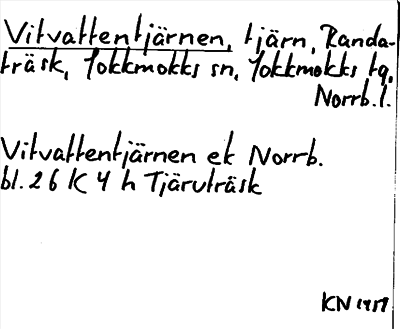 Vitvattentjärnen, tjärn, Randa-
träsk, Jokkmokks sn, Jokkmokks tg,
Norrb. l.
Vitvattentjärnen ek Norrb.
bl. 26 K 4 h Tjäruträsk
KN